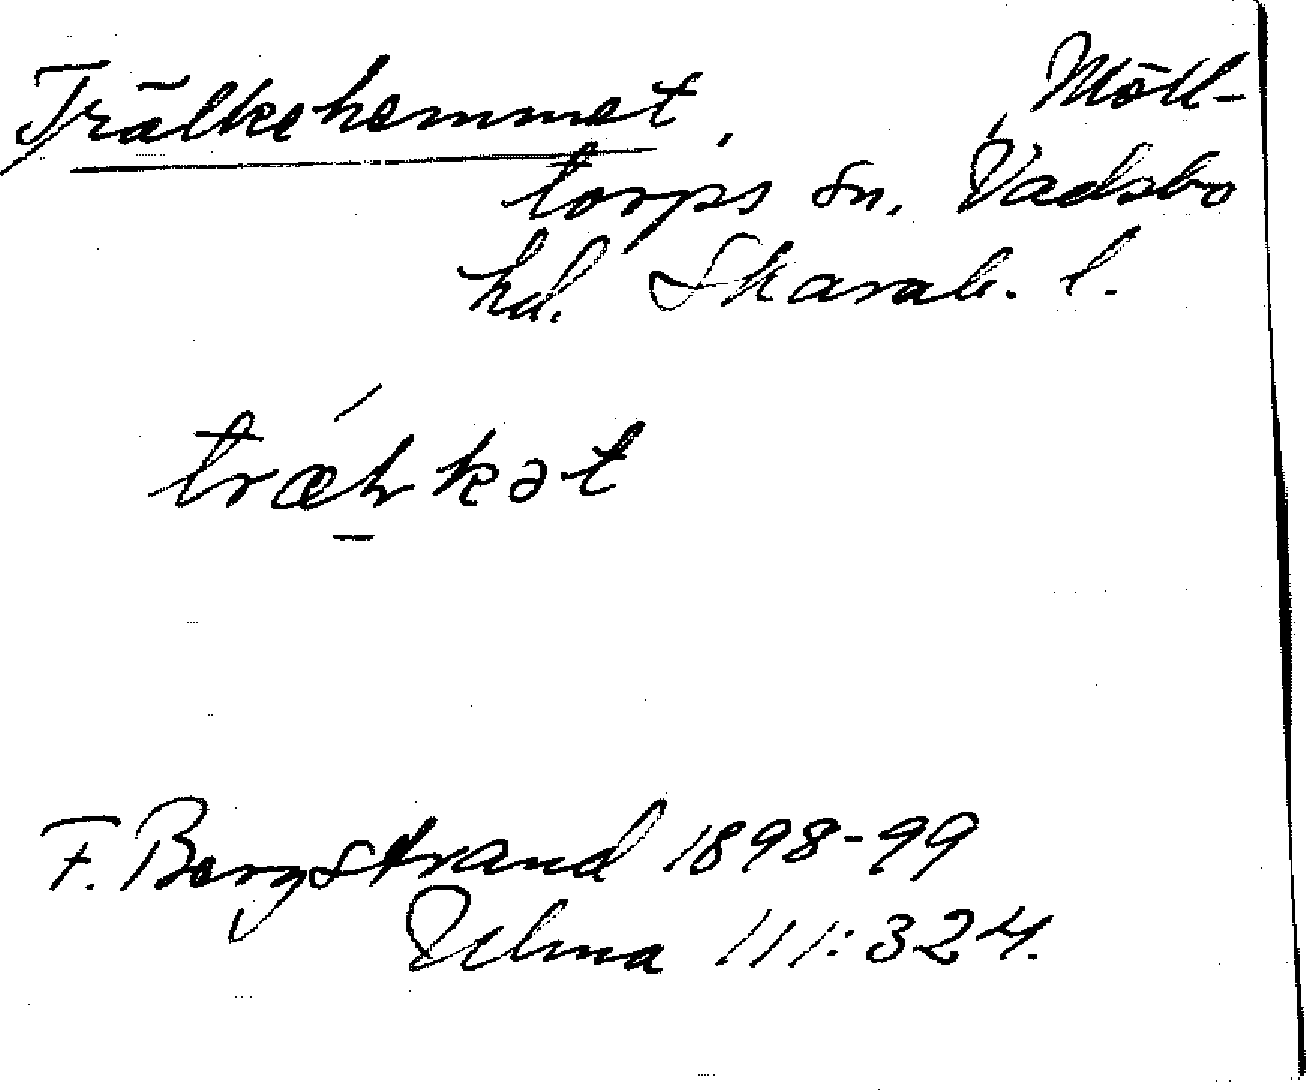 Trälkehemmet, Möll-
torps sn. Vadsbo
hd. Skarab. l.
træ̱lkət
F. Bergstrand 1898-99
Ulma 111:324.